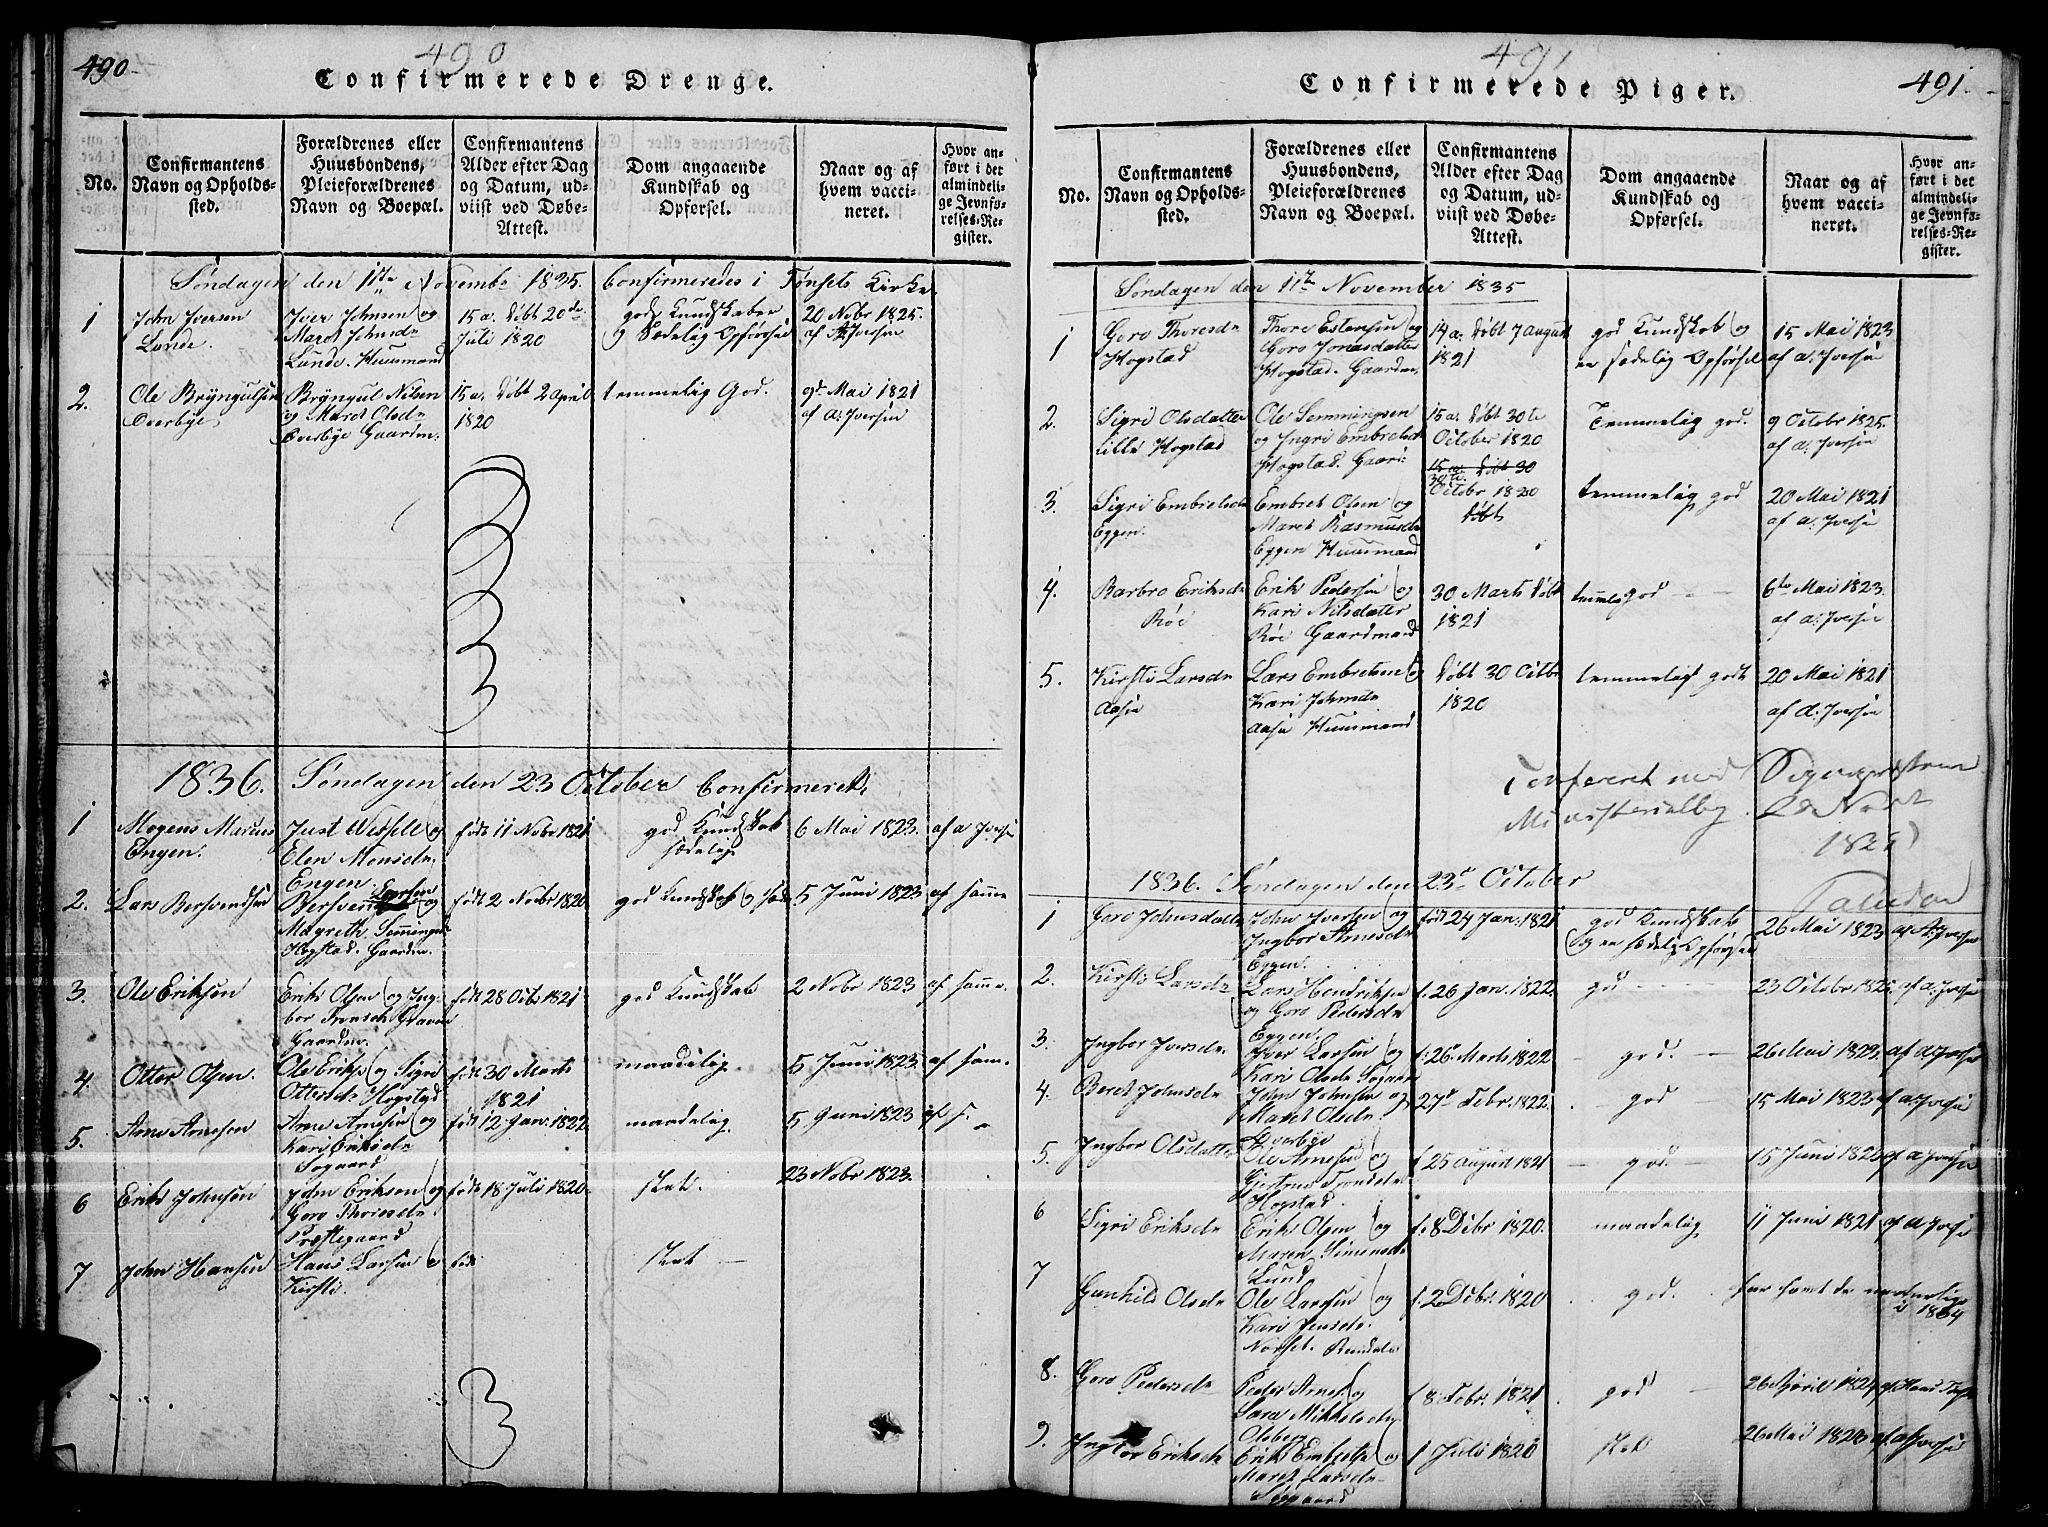 490.
490
Confirmerede Drenge.
No.
Confirmantens
Navn og Opholds-
sted.
Forældrenes eller
Huusbondens,
Pleieforældrenes
Navn og Boepæl.
Confirmantens
Alder efter Dag
og Datum, ud-
viist ved Døbe-
Attest.
Dom angaaende
Kundskab og
Opførsel.
Naar og af
hvem vacci-
neret.
Hvor an-
ført i det
almindeli-
ge Jevnfø-
relses-Re-
gister.
Søndagen den 11te Novembr 1835. Confirmeredes i Tønsets Kirke.
1
John Iversen
Lunde.
Iver Johnsen og
Maret Johnsdr
Lunde. Huusmand
15 a. døbt 20de
Juli 1820
god Kundskaber
og Sædelig Opførsel
20 Nobr 1825.
af A. Iversen
2.
Ole Bryngulsen
Overbye
Bryngul Nilsen
og Maret Olsdr
Overbye Gaardm.
15 a. døbt 2 April
1820
temmelig God.
9de Mai 1821
af A. Iversen
1836. Søndagen den 23 October Confirmerede
1
Mogens Marcus
Engen.
Just Wessell og
Elen Monsdr.
Engen.
født 11 Nobr 1821
god Kundskab
sædelig
6 Mai 1823.
af A Iversen
2.
Lars Bersvendsen
Bersvend Larsen og
Magreth Semmingsdr
Hogstad. Gaardm.
født 2 Novbr 1820
god Kundskab og sæd
5 Juni 1823
af samme
3.
Ole Eriksen
Erik Olsen og Ing-
bor Tronsdr Graven
Gaardm.
født 28 Octb 1821
god Kundskab
2 Nobr 1823
af samme.
4.
Otter Olsen.
Ole Eriksen og Sigri
Ottersdr Hogstad
født 30 Marts
1821
maadelig
5 Juni 1823
af sam.
5.
Arne Arnesen
Arne Arnesen og
Kari Eriksdr
Sogaard
født 12 Jan. 1822
maadelig
5 Juni 1823
af s.
6
Erik Johnsen
John Eriksen og
Goro Thoresdr
Præstegaard
født 18 Juli 1820
slet.
23 Nobr 1823.
7
John Hansen
Hans Larsen og
Kirsti.
født
slet
491
491.
Confirmerede Piger.
No.
Confirmantens
Navn og Opholds-
sted.
Forældrenes eller
Huusbondens,
Pleieforældrenes
Navn og Boepæl.
Confirmantens
Alder efter Dag
og Datum, ud-
viist ved Døbe-
Attest.
Dom angaaende
Kundskab og
Opførsel.
Naar og af
hvem vacci-
neret.
Hvor an-
ført i det
almindeli-
ge Jevnfø-
relses-Re-
gister.
Søndagen den 11te November 1835
1
Goro Thoresdr
Hogstad
Thore Estensen og
Goro Jonasdatter
Hogstad. Gaardm.
14 a. døbt 7 August
1821
god Kundskab og
en sædelig Opførsel
15 Mai 1823
af A. Iversen
2.
Sigri Olsdatter
Lille Hogstad
Ole Semmingsen
og Ingri Embretsdr
Hogstad. Gaard
15 a. døbt 30te
October 1820
Temmelig god.
9 Octobr 1825.
af A. Iversen
3.
Sigri Embretsdr
Eggen.
Embret Olsen og
Maret Rasmusdr
Eggen Huusmand
15 a. døbt 30
30te
Octobr 1820
døbt
temmelig god
20 Mai 1821
af A. Iversen
4.
Barbro Eriksdr
Røe
Erik Pedersen og
Kari Nilsdatter
Røe Gaardmand
30 Marts døbt
1821
temmelig god
6te Mai 1823.
af A. Iversen
5.
Kirsti Larsdr
Aasen
Lars Embretsen og
Kari Johnsdr
Aasen Huusmand
døbt 30 Octbr
1820
temmeligt godt
20 Mai 1821
af A. Iversen
Confereret med
Ministerialbog
1836. Søndagen den 23de October
1
Goro Johnsdatter
John Iversen og
Ingbor Arnesdr
Eggen.
født 24 Jan. 1821
god Kundskab
og en sædelig Opførsel
26 Mai 1823
af A. Iversen
2.
Kirsti Larsdr
Lars Hendriksen
og Goro Pedersdr
Eggen.
f. 26 Jan. 1822.
god
23 Octobr 1825
af A. Iversen
3.
Ingbor Iversdr
Iver Larsen og
Kari Olsdr Sogaar
f. 26 Marts 1822
god.
26 Mai 1823.
af A Iversen
4.
Beret Johnsdr
John Johnsen og
Maret Olsdr.
Overbye
27de Febr. 1822.
god
15 Mai 1823
af A. Iversen
5.
Ingbor Olsdatter
Ole Arnesen og
Gjertrud Trondsdr
Hogstad.
f. 25 August 1821
god.
15 Juni 1823
af A Iversen
6
Sigri Eriksdr
Erik Olsen og
Maren Simensdr
Lund
f. 8 Debr 1820.
maadelig
11 Juni 1821
af A Iversen
7
Gunhild Olsdr
Ole Larsen og
Kari Jensdr.
Norset. Rendalen
f. 2 Debr. 1820
god.
har havt de naturlige
i 1834
8.
Goro Pedersdr
Peder Arnes og
Sara Mikkelsdr
Olsberg
f 8 Febr. 1821
god
26 April 1824
9.
Ingbor Eriksdr
Erik Embretsen og
Maret Larsdr
Søgaard
1 Juli 1820
slet
26 Mai 1820
af A Iversen